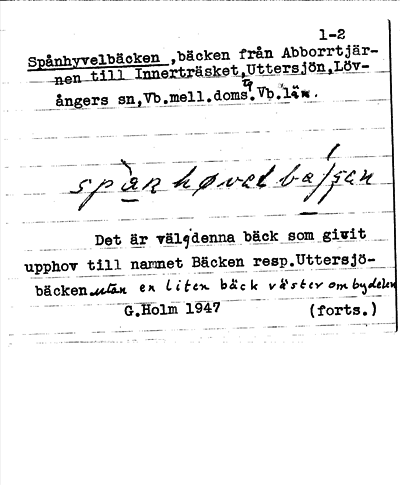 1-2
Spånhyvelbäcken ,bäcken från Abborrtjär-
nen till Innerträsket,Uttersjön,Löv-
ångers sn,Vb.mell.doms. Vb.län.
Det är välidenna bäck som givit
upphov till namnet Bäcken resp.Uttersjö-
bäcken utan en liten bäck väster om bydelen
G.Holm 1947 (forts.)